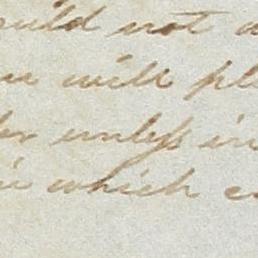 ould not a
u will pl
er unless in
in which ca